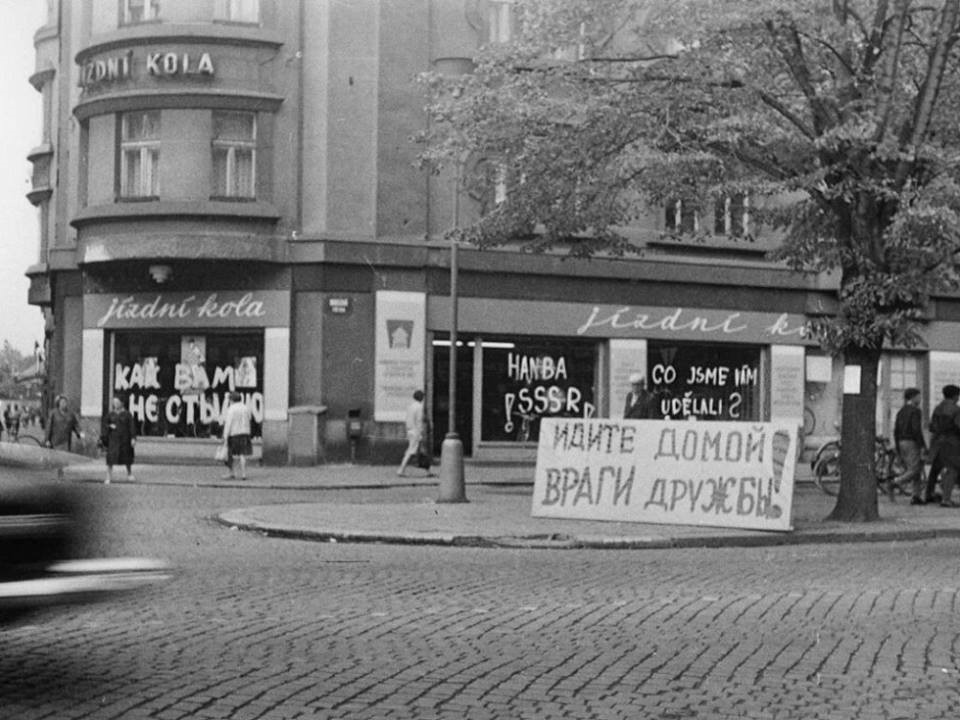 JÍZDNÍ KOLA
jízdní kola
КАК ВАМ
НЕ СТЫДНО
HANBA
!SSSR!
CO JSME IIM
UDĚLALI?
jízdní
ИДИТЕ ДОМОЙ
ВРАГИ ДРУЖБЫ!